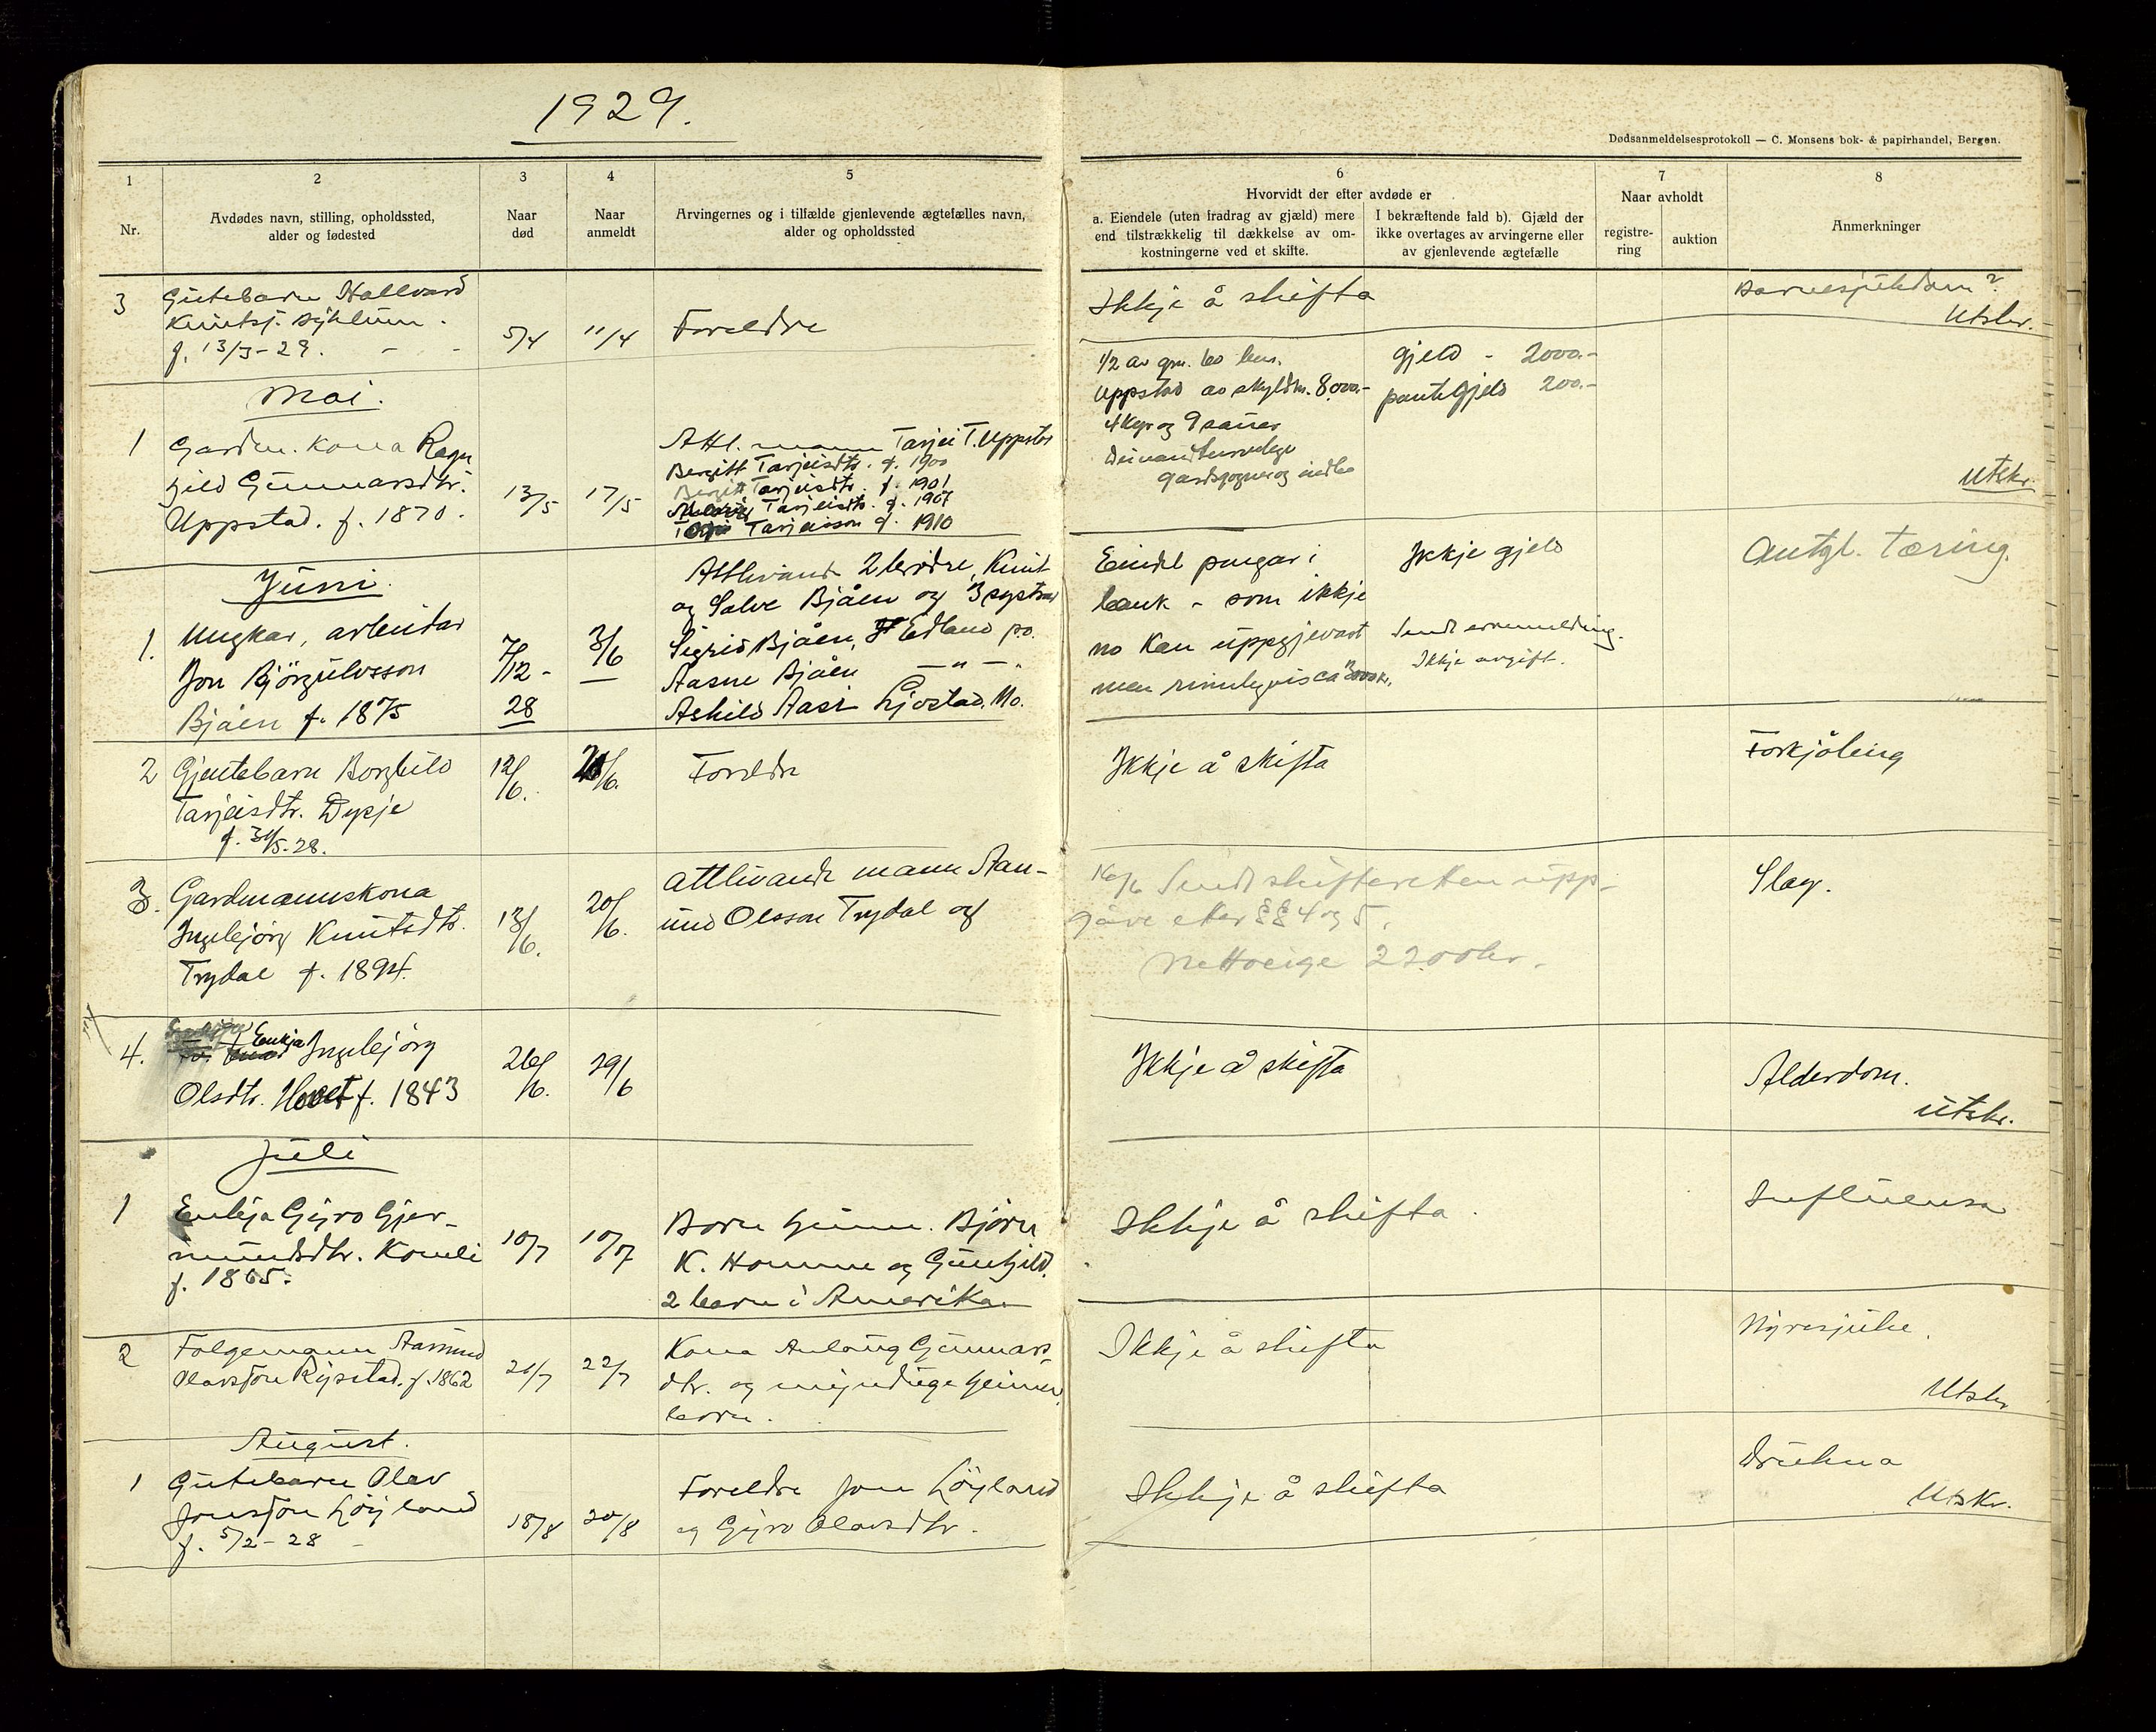 1929.
Dødsanmeldelsesprotokoll — C. Monsens bok- & papirhandel, Bergen.
1
2
3
4
5
6
7
8
Nr.
Avdødes navn, stilling, opholdssted,
alder og fødested
Naar
død
Naar
anmeldt
Arvingernes og i tilfælde gjenlevende ægtefælles navn,
alder og opholdssted
Hvorvidt der efter avdøde er
a. Eiendele (uten fradrag av gjæld) mere
end tilstrækkelig til dækkelse av om-
kostningerne ved et skifte.
I bekræftende fald b). Gjæld der
ikke overtages av arvingerne eller
av gjenlevende ægtefælle
Naar avholdt
registre-
ring
auktion
Anmerkninger
3
Gutebarn Hallvard
Knutsj. Byklum.
f. 13/3-29.
5/4
11/4
Foreldre
Ikkje å skifta
Barnesjukdom?
Utskr.
Mai.
1
Gardm. Kona Ragn
hild Gunnarsdtr.
Uppstad. f. 1870.
13/5
17/5
Attl. mann Tarjei T. Uppstad
Bergitt Tarjeisdtr. f. 1900
Bergitt Tarjeisdtr. f. 1901
Tarjeisdtr. f. 1907
Tarjeisson f. 1910
1/2 av gm. 60 bm.
Uppstad av skyldm. 8000.-
4 kyr og 9 sauer
gardsgogner og indbo
gjeld - 2000.-
pantegjeld 200.-
Utskr.
Juni.
1.
Ungkar, arbeidar
Jon Björgulvsson
Bjåen f. 1875
7/12-
28
3/6
Attlivande 2 brødre, Knut
og Salve Bjåen og 3 systrar
Sigrid Bjåen, Edland po.
Aasne Bjåen — " — .
Ashild Aasi Ljostad. Mo.
Eindel pengar i
bank - som ikkje
no kan uppgjevast
men rimelegvis ca 3000 kr.
Ikkje gjeld
Sendt arvemelding.
Ikkje avgift.
Antgl. tæring.
2
Gjentebarn Borghild
Tarjeisdtr. Dysje
f. 31/5.28.
12/6.
20/6.
Foreldre
Ikkje å skifta
Forkjöling
3.
Gardmannskona
Ingebjörg Knutsdtr.
Trydal f. 1894.
13/6.
20/6.
attlivande mann Aan-
und Olsson Trydal og
16/6 Sendt skifteretten upp-
gåve etter §§ 4 og 5.
Nettoeige 2200 kr.
Slag.
4.
Enkja Ingebjörg
Olsdtr. Hovet f. 1843
26/6.
29/6
Ikkje å skifta
Alderdom.
Utskr.
Juli
1
Enkja Gyro Gjer-
mundsdtr. Homli
f. 1865.
10/7
17/7
Born Gunn. Björn
K. Homme og Gunhild.
2 born i Amerika
Ikkje å skifta.
Influensa
2
Folgemann Aasmund
Olavsson Rysstad. f. 1862
21/7
22/7
Kona Anlaug Gunnars-
dtr. og myndige heime
born.
Ikkje å skifta
Nyresjuke.
Utskr
August.
1
Gutebarn Olav
Jonsson Löyland
f. 5/2-28
18/8
20/8
Foreldre Jon Löyland
og Gyro Olavsdtr.
Ikkje å skifta
Drukna
Utskr.